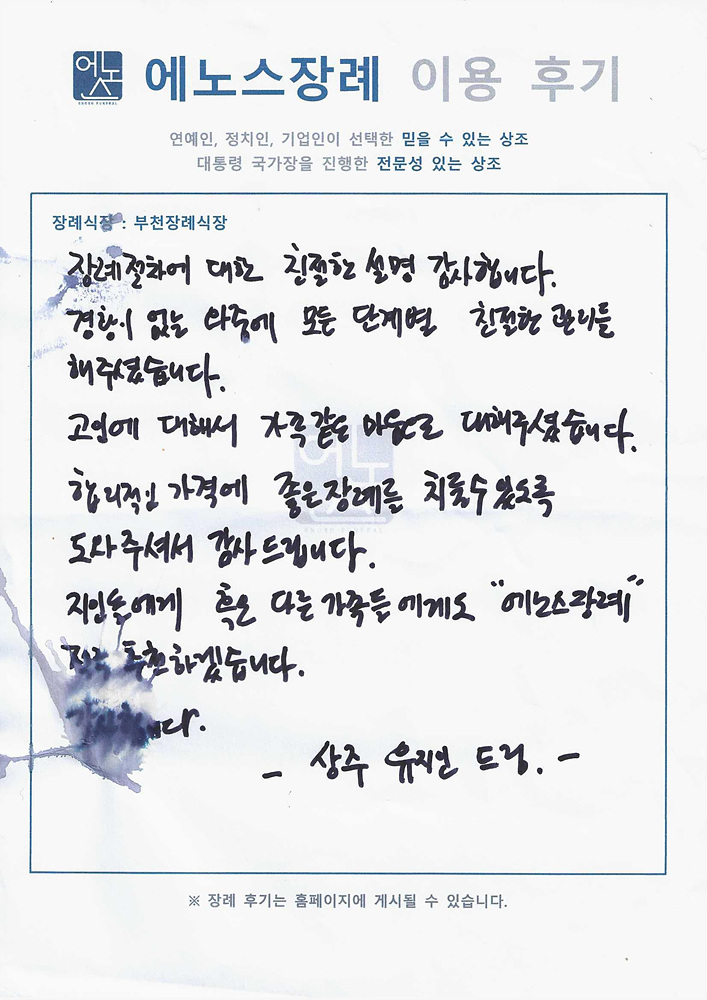 에노스
ENOSH FUNERAL
에노스장례 이용 후기
연예인, 정치인, 기업인이 선택한 믿을 수 있는 상조
대통령 국가장을 진행한 전문성 있는 상조
장례식장 : 부천장례식장
장례절차에 대한 친절한 설명 감사합니다.
경황이 없는 와중에 모든 단계별 친절한 관리를
해주셨습니다.
고인에 대해서 가족같은 마음으로 대해주셨습니다.
합리적인 가격에 좋은장례를 치를수있도록
도와주셔서 감사드립니다.
지인들에게 혹은 다른가족들에게도 "에노스장례"
추천하겠습니다.
감사합니다.
- 상주 유지인 드림. -
※ 장례 후기는 홈페이지에 게시될 수 있습니다.